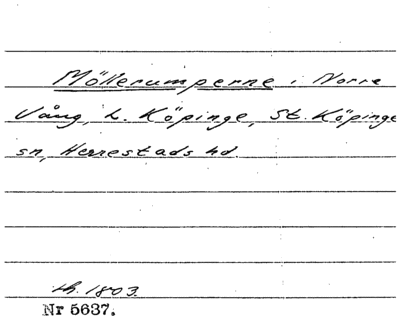 Möllerumperne i Norra
Vång, L. Köpinge, St. Köpinge
sn, Herrestads hd.
Lh. 1803.
Nr 5637.